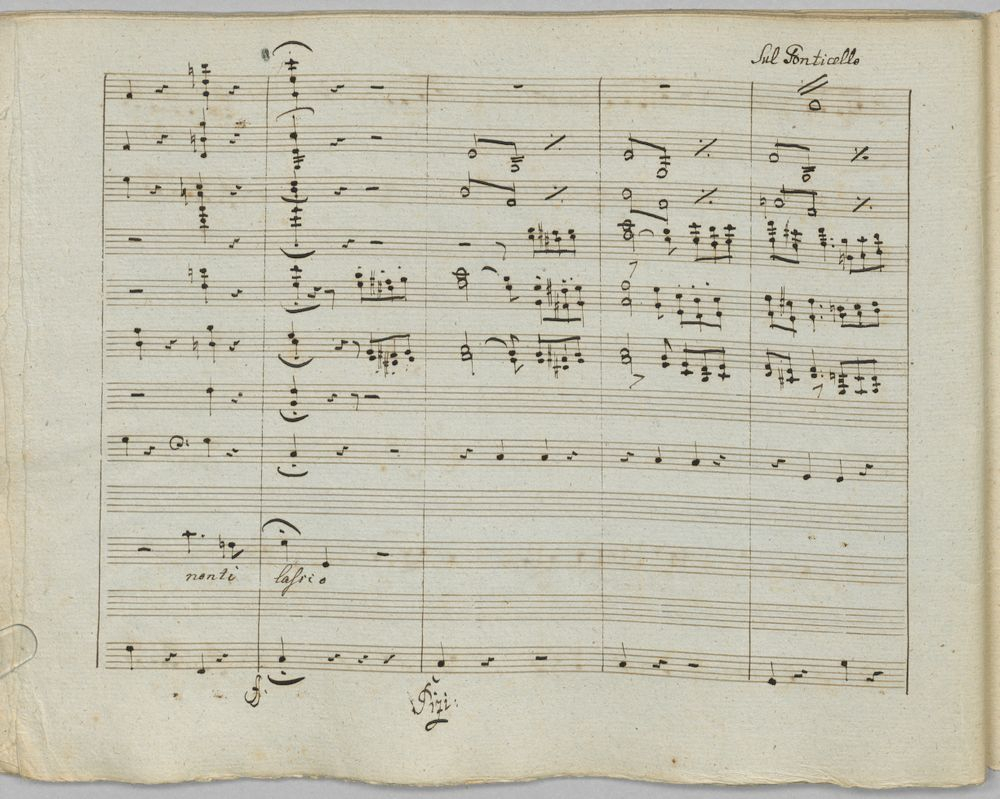 Sul Ponticello
non ti lascio
f.
Pizi: